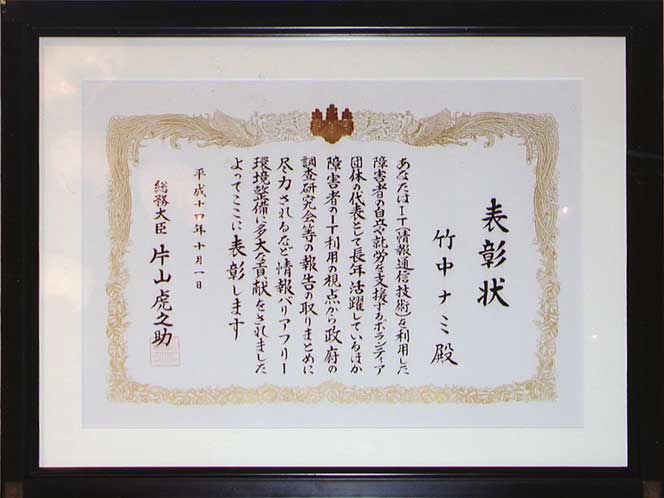 表彰状
竹中ナミ殿
あなたはIT(情報通信技術)を利用した
障害者の自立や就労を支援するボランティア
団体の代表として長年活躍しているほか
障害者のIT利用の視点から政府の
調査研究会等の報告の取りまとめに
尽力されるなど情報バリアフリー
環境整備に多大な貢献をされました
よってここに表彰します
平成十四年十月一日
総務大臣 片山虎之助